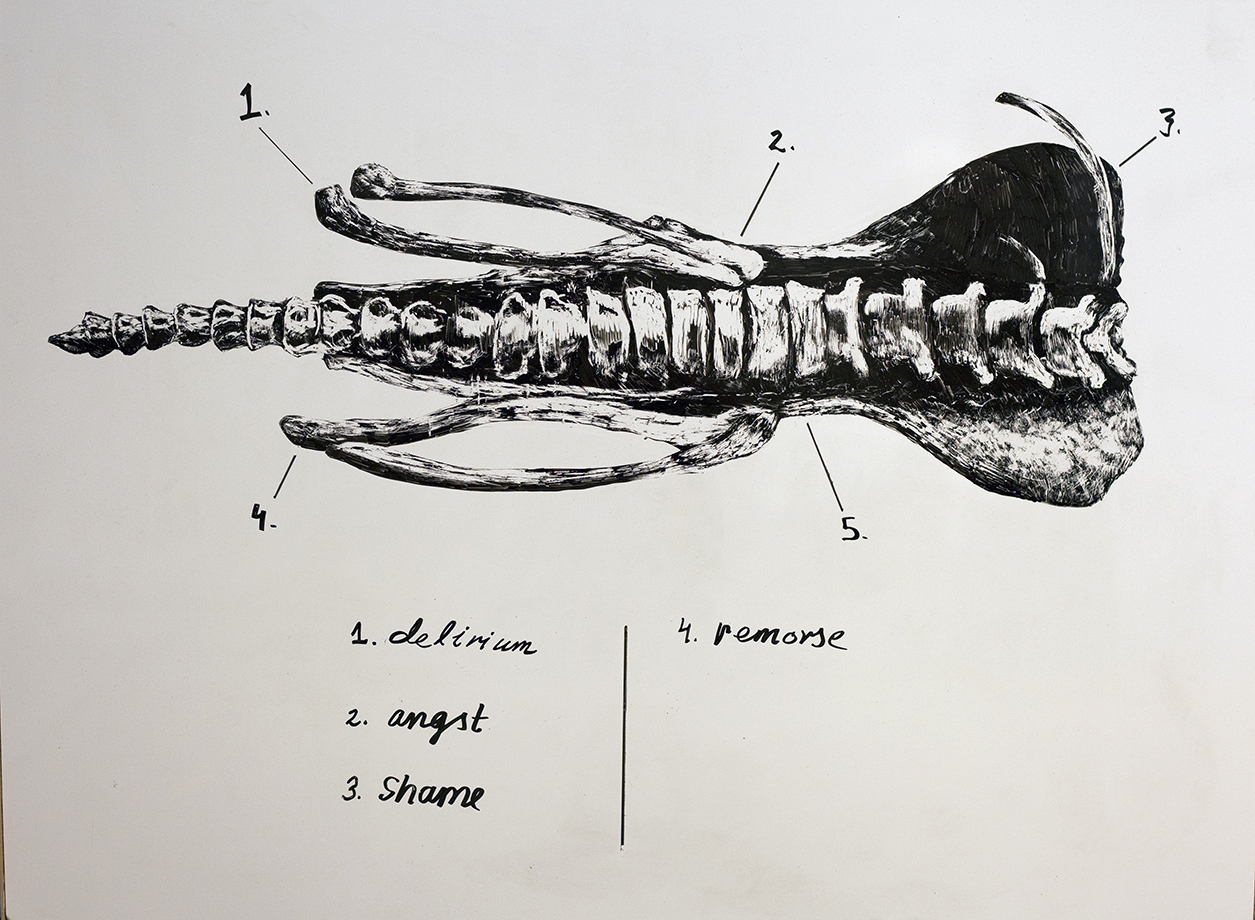 1.
2.
3.
4.
5.
1. delirium
2. angst
3. Shame
4. remorse